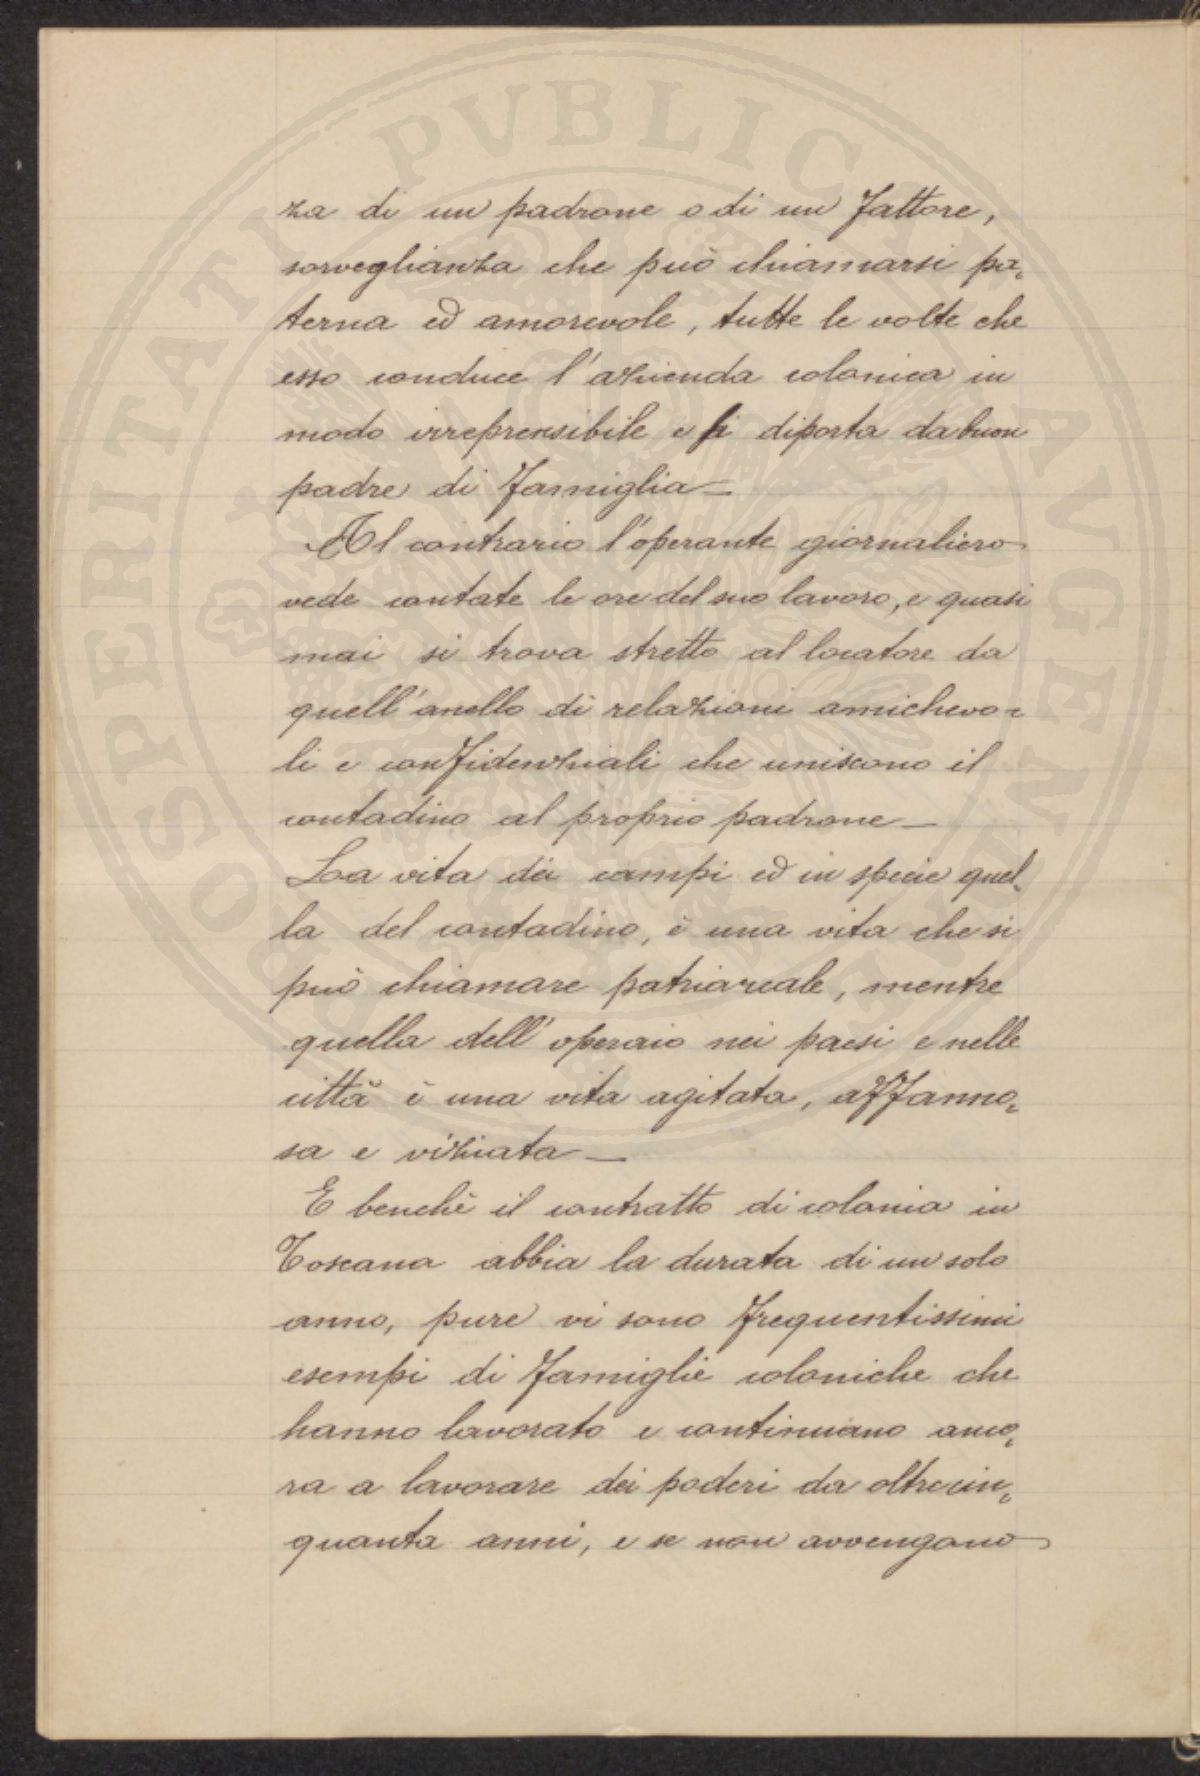 za di un padrone o di un fattore,
sorveglianza che può chiamarsi pa=
terna ed amorevole, tutte le volte che
esso conduce l'azienda colonica in
modo irreprensibile e si diporta da buon
padre di famiglia_
Al contrario l'operante giornaliero
vede contate le ore del suo lavoro, e quasi
mai si trova stretto al locatore da
quell'anello di relazioni amichevo=
li e confidenziali che uniscono il
contadino al proprio padrone_
La vita dei campi ed in specie quel=
la del contadino, è una vita che si
può chiamare patriarcale, mentre
quella dell'operaio nei paesi e nelle
città è una vita agitata, affanno=
sa e viziata_
E benchè il contratto di colonia in
Toscana abbia la durata di un solo
anno, pure vi sono frequentissimi
esempi di famiglie coloniche che
hanno lavorato e continuano anco=
ra a lavorare dei poderi da oltre cin=
quanta anni, e se non avvengano
PROSPERITATI PVBLICAE AVGENDAE